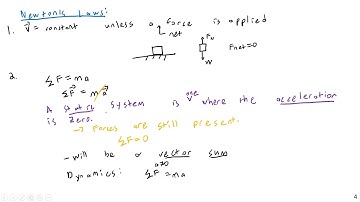 Newtonic Laws:
1. v = constant unless a force is applied
net
FN
Fnet=0
W
2. ΣF = ma
ΣF = ma
A static system is one where the acceleration
is zero.
→ Forces are still present.
ΣF=0
- will be a vector sum
a≠0
Dynamics: ΣF = ma
4